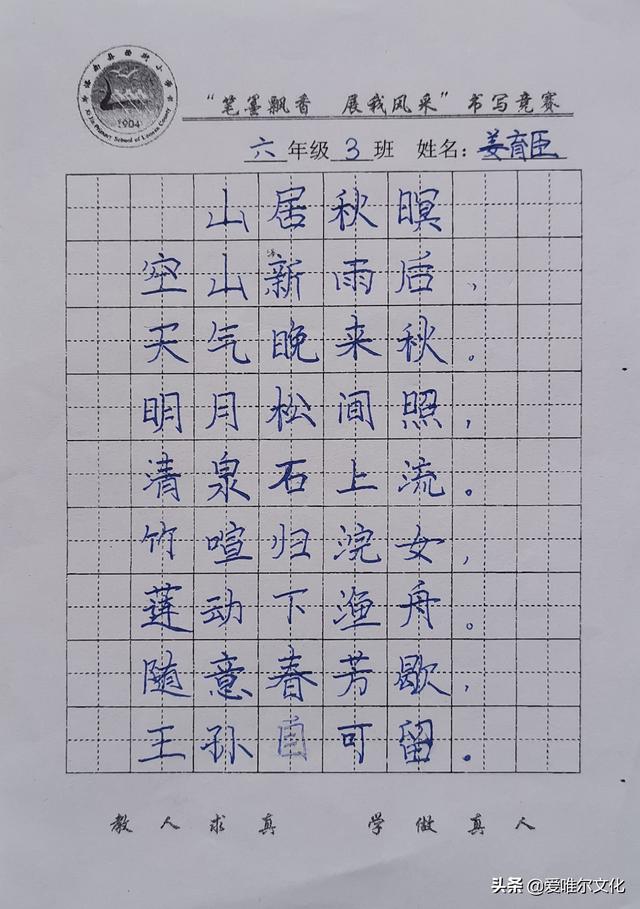 1904
“笔墨飘香 展我风采”书写竞赛
六年级 3 班 姓名：姜育臣
山居秋暝
空山新雨后，
天气晚来秋。
明月松间照，
清泉石上流。
竹喧归浣女，
莲动下渔舟。
随意春芳歇，
王孙自可留。
教人求真 学做真人
头条 @爱唯尔文化